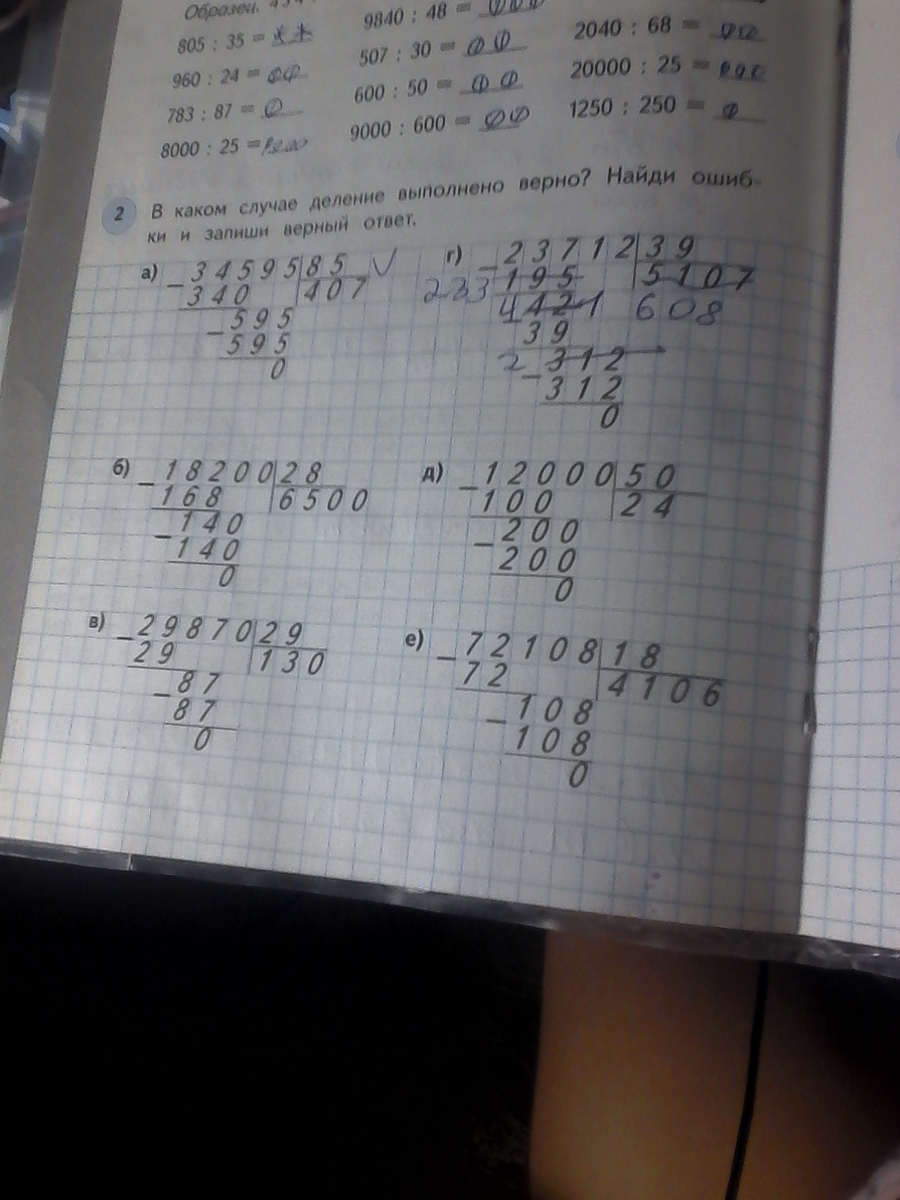 Образец.
805 : 35 = * *
960 : 24 =
783 : 87 =
8000 : 25 =
9840 : 48 =
507 : 30 =
600 : 50 =
9000 : 600 =
2040 : 68 =
20000 : 25 =
1250 : 250 =
2 В каком случае деление выполнено верно? Найди ошиб-
ки и запиши верный ответ.
а) 34595 85 V
340 407
595
595
0
г) 23712 39
233 195 5107
4421 608
39
2 312
312
0
б) 18200 28
168 6500
140
140
0
д) 12000 50
100 24
200
200
0
в) 29870 29
29 130
87
87
0
е) 72108 18
72 4106
108
108
0